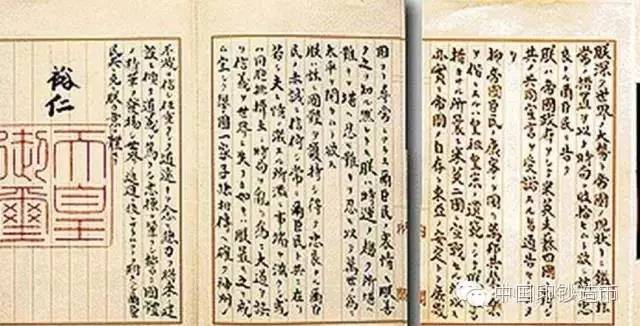 朕深ク世界ノ大勢ト帝國ノ現狀トニ鑑ミ非
常ノ措置ヲ以テ時局ヲ收拾セムト欲シ茲ニ忠
良ナル爾臣民ニ告ク
朕ハ帝國政府ヲシテ米英支蘇四國ニ對シ
其ノ共同宣言ヲ受諾スル旨通告セシメタ
リ
抑帝國臣民ノ康寧ヲ圖リ萬邦共榮ノ樂
ヲ偕ニスルハ皇祖皇宗ノ遺範ニシテ朕ノ拳々
措カサル所曩ニ米英二國ニ宣戰セル所以モ
亦實ニ帝國ノ自存ト東亞ノ安定トヲ庶幾
固ヨリ尋常ニアラス爾臣民ノ衷情モ朕善
ク之ヲ知ル然レトモ朕ハ時運ノ趨ク所堪ヘ
難キヲ堪ヘ忍ヒ難キヲ忍ヒ以テ萬世ノ爲ニ
太平ヲ開カムト欲ス
朕ハ茲ニ國體ヲ護持シ得テ忠良ナル爾臣
民ノ赤誠ニ信倚シ常ニ爾臣民ト共ニ在リ
若シ夫レ情ノ激スル所濫ニ事端ヲ滋クシ或
ハ同胞排擠互ニ時局ヲ亂リ爲ニ大道ヲ誤
リ信義ヲ世界ニ失フカ如キハ朕最モ之ヲ戒
ム宜シク擧國一家子孫相傳ヘ確ク神州ノ
不滅ヲ信シ任重クシテ道遠キヲ念ヒ總力ヲ將來ノ建
設ニ傾ケ道義ヲ篤クシ志操ヲ鞏クシ誓テ國體
ノ精華ヲ發揚シ世界ノ進運ニ後レサラムコトヲ期スヘシ爾臣
民其レ克ク朕カ意ヲ體セヨ
裕仁
天皇
御璽
中国印钞造币